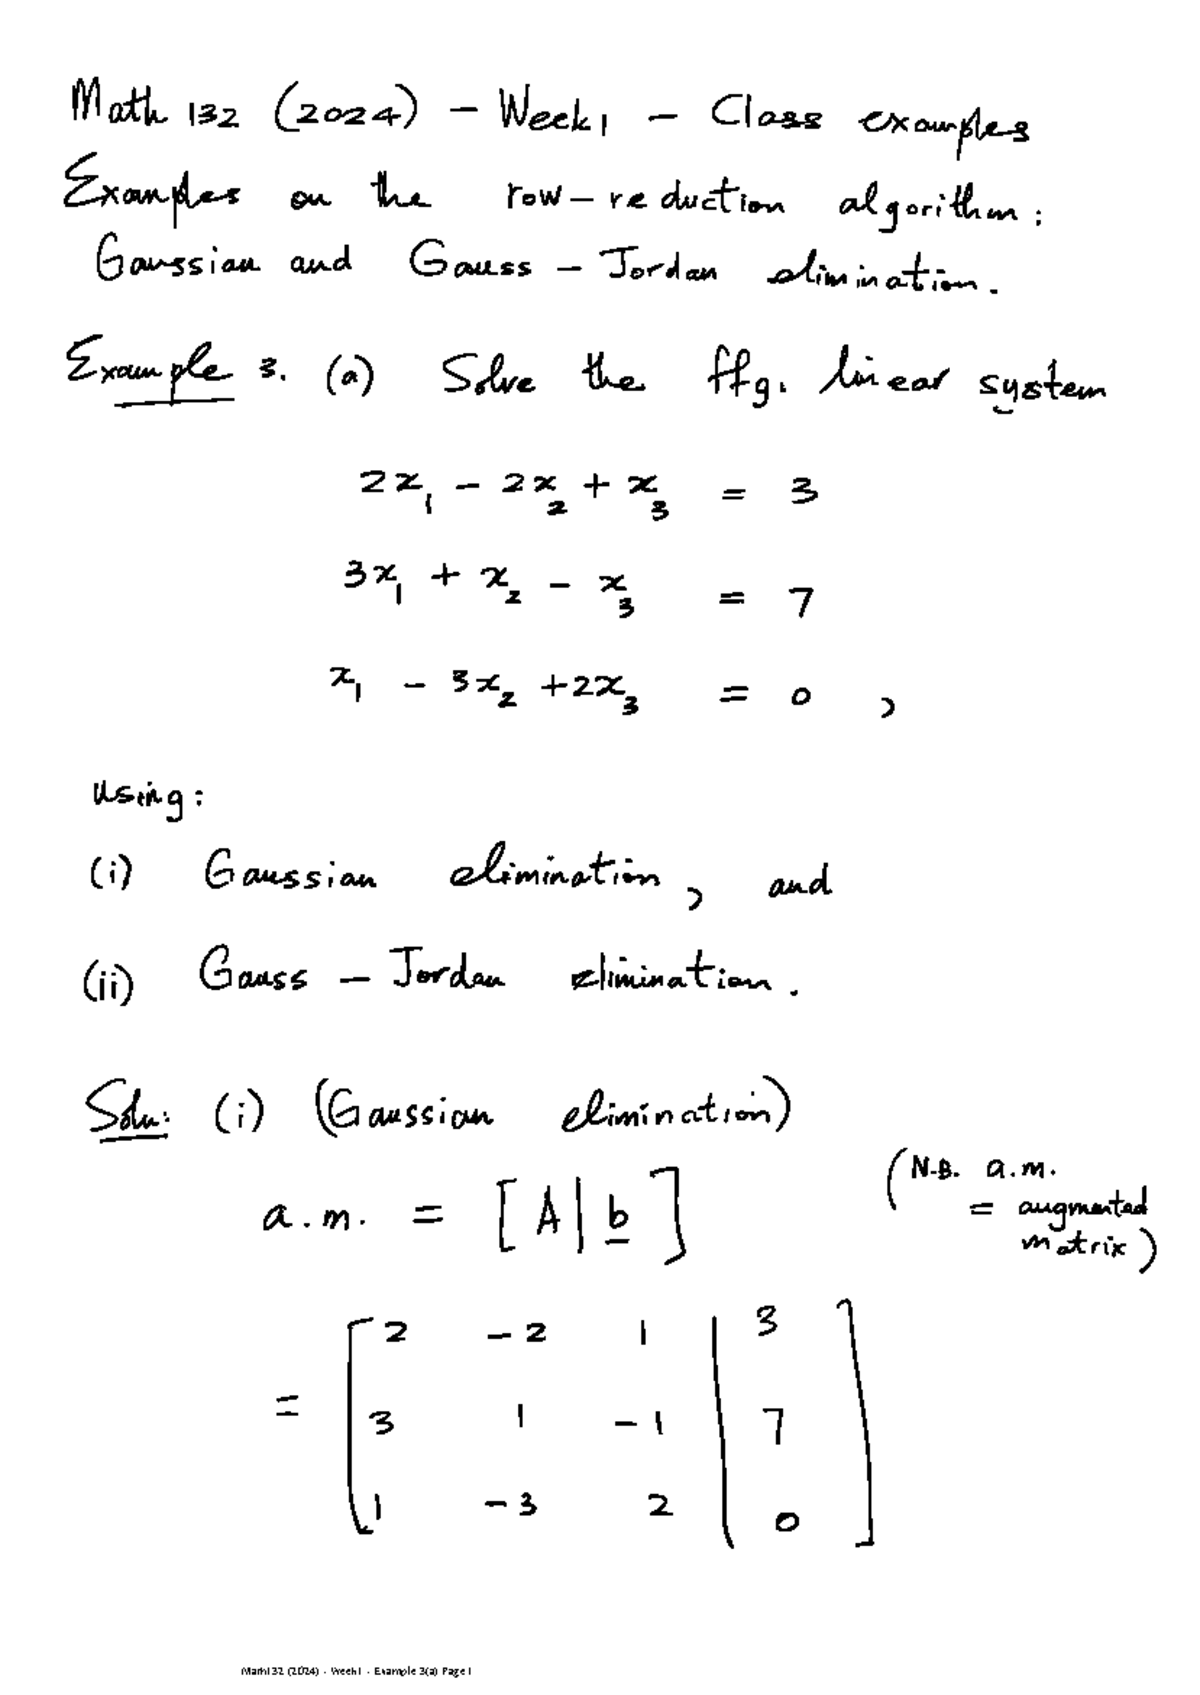 Math 132 (2024) - Week 1 - Class examples
Examples on the row-reduction algorithm:
Gaussian and Gauss - Jordan elimination.
Example 3. (a) Solve the ffg. linear system
2x₁ - 2x₂ + x₃ = 3
3x₁ + x₂ - x₃ = 7
x₁ - 3x₂ + 2x₃ = 0 ,
using:
(i) Gaussian elimination, and
(ii) Gauss - Jordan elimination.
Soln: (i) (Gaussian elimination)
(N.B. a.m.
= augmented
matrix)
a.m. = [A | b]
2 -2 1 | 3
= 3 1 -1 | 7
1 -3 2 | 0
Math132 (2024) - Week1 - Example 3(a) Page 1